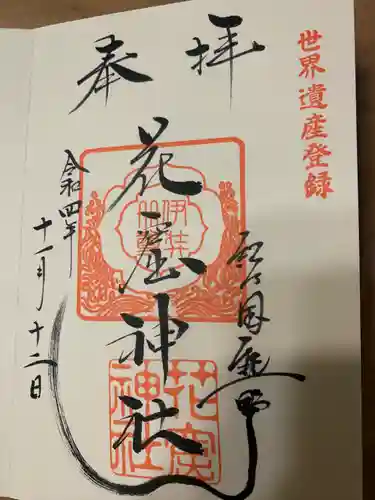 世界遺産登録
奉拝
花窟神社
令和四年
十一月十二日
熊野
花窟
神社